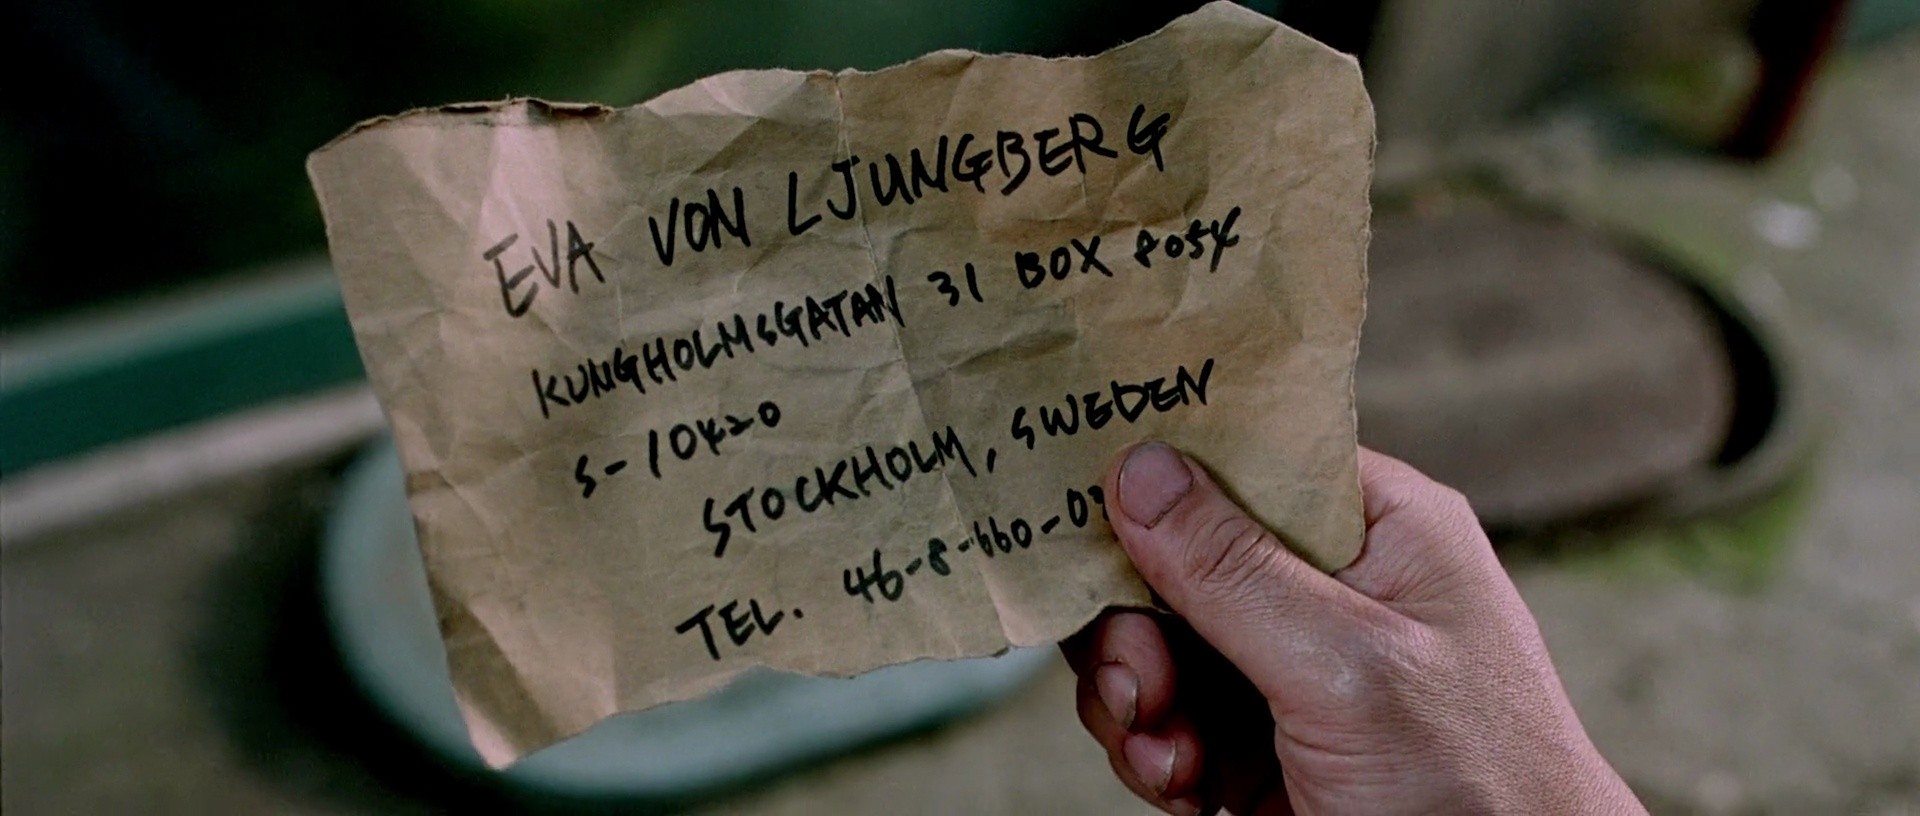 EVA VON LJUNGBERG
KUNGHOLMSGATAN 31 BOX 8054
S-10420
STOCKHOLM, SWEDEN
TEL. 46-8-660-0